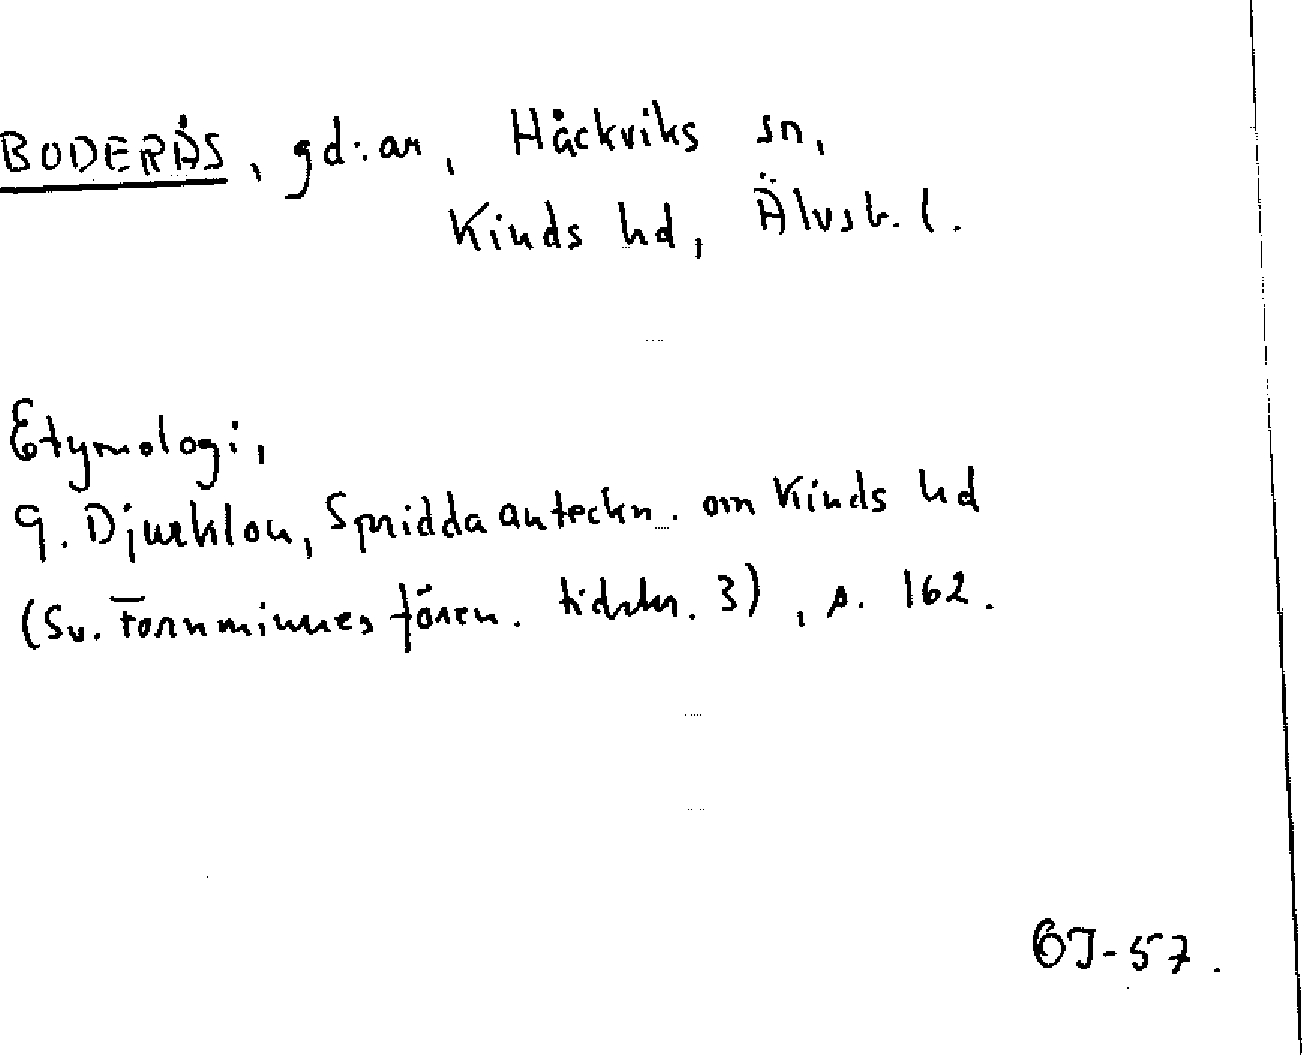 BODERÅS, gd:ar, Håckviks sn,
Kinds hd, Älvsb. l.
Etymologi,
G. Djurklou, Spridda anteckn. om Kinds hd
(Sv. Fornminnesfören. tidskr. 3), s. 162.
ÖJ-57.